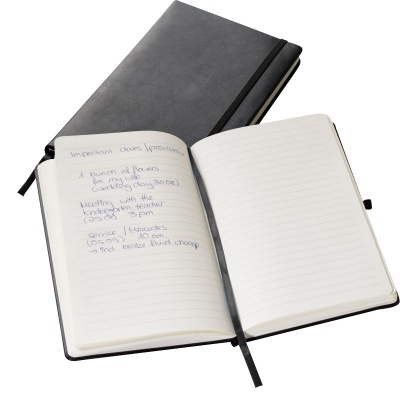 Important dates /
1 bunch of flowers
for my wife
(wedding day 30.08)
Meeting with the
kindergarten teacher
(29.09) 3 pm
service / Mercedes
(05.09) 10 am
→ incl. brake fluid change